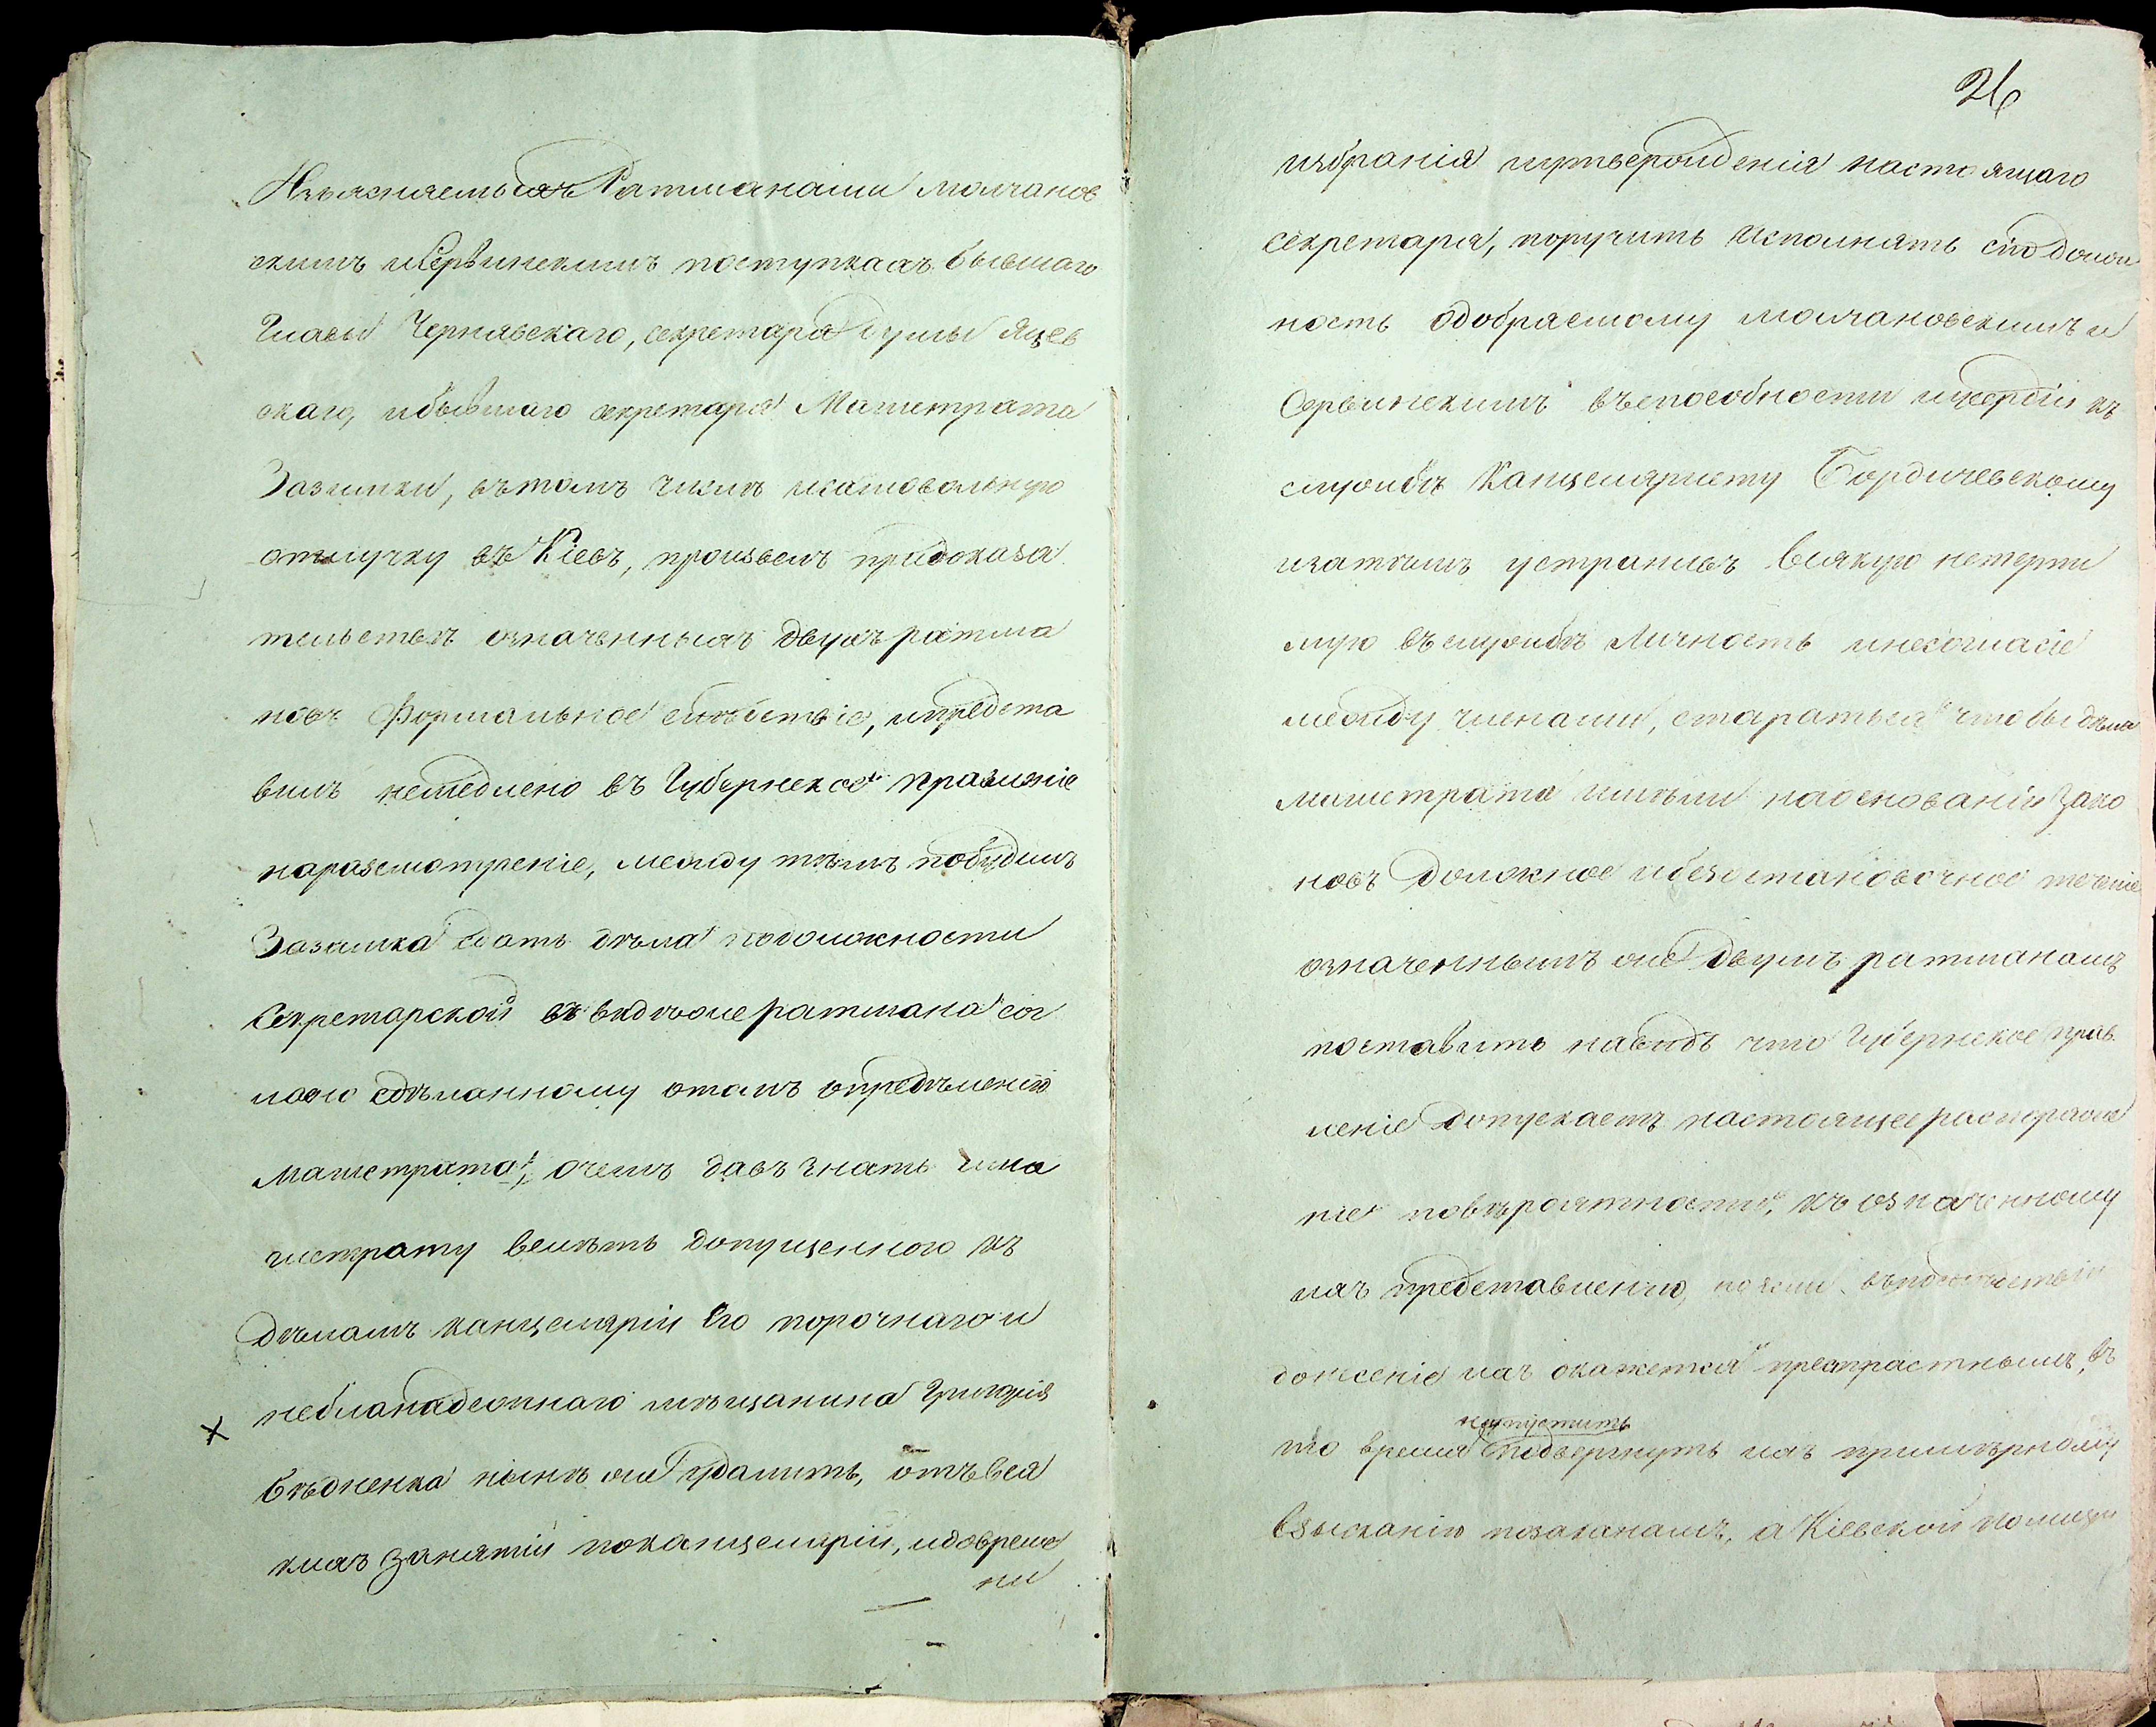 Изъясняемыхъ Ратманами Молчанов
скимъ и Сервинскимъ поступкахъ бывшаго
Главы Чернявскаго, секретаря Думы Яцев
скаго, и бывшаго секретаря Магистрата
Зазимки, въ томъ числѣ и самовольную
отлучку въ Кіевъ, произвелъ при доказа
тельствѣ означенныхъ двухъ ратма
новъ формальное слѣдствіе, и предста
вилъ немедлено въ Губернское правленіе
на разсмотреніе, между тѣмъ побудилъ
Зазимка сдать дѣла по должности
секретарской въ вѣд
ратмана сог
ласно сдѣланному о томъ опредѣленію
Магистрата, о чемъ давъ знать и ма
гистрату велѣть допущенного къ
дѣламъ канцеляріи его порочнаго и
неблагонадежнаго мѣщанина Григорія
Бѣдненка нынѣ же удалить, отъ вся
кихъ занятій по канцеляріи, и до време
ни
26
избранія и утвержденія настоящаго
секретаря, поручить исполнять сію долж
ность одобряемому Молчановскимъ и
Сервинскимъ въ способности и усердіи къ
службѣ Канцеляристу Бордичевскому
и затѣмъ устранивъ всякую нетерпи
мую въ службѣ личность и несогласіе
между членами, стараться чтобы дѣла
магистрата имѣли на основаніи зако
новъ должное и безостановочное теченіе
означеннымъ же двумъ ратманамъ
поставить на видъ что Губернское прав
леніе допускаетъ настоящее распоряже
ніе по вѣроятности, къ означенному
ихъ представленію, но если въ послѣдствіи
донесеніе ихъ окажется пристрастнымъ, въ
то время подвергнуть ихъ примѣрному
взысканію по законамъ, а Кіевской полиціи